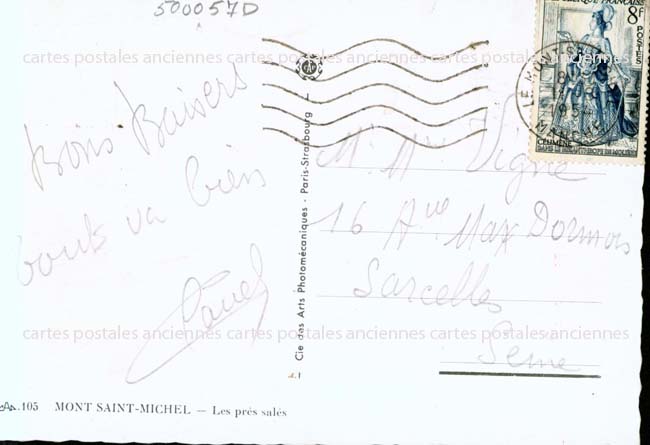 500057D
RÉPUBLIQUE FRANÇAISE
8F
POSTES
CÉLIMÈNE
DANS LE MISANTHROPE DE MOLIÈRE
LE MONT-ST
MANCHE
cartes postales anciennes cartes postales anciennes cartes postales anciennes
Bons Baisers
tout va bien
M. Mme Vigne
16 Aue Max Dormois
Sarcelles
Seine
Cie des Arts Photomécaniques - Paris-Strasbourg
cartes postales anciennes cartes postales anciennes cartes postales anciennes
105 MONT SAINT-MICHEL — Les prés salés